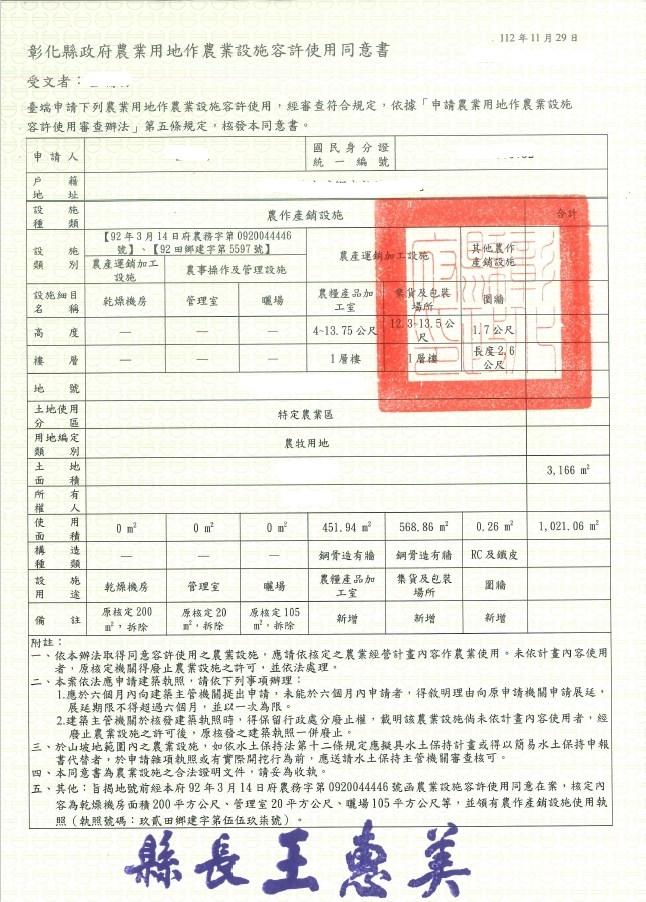 112 年 11 月 29 日
彰化縣政府農業用地作農業設施容許使用同意書
受文者：
臺端申請下列農業用地作農業設施容許使用，經審查符合規定，依據「申請農業用地作農業設施
容許使用審查辦法」第五條規定，核發本同意書。
申請人
國民身分證
統一編號
戶籍
地址
設施
種類
農作產銷設施
合計
設施
類別
【92 年 3 月 14 日府農務字第 0920044446
號】、【92 田鄉建字第 5597 號】
農產運銷加工
設施
農事操作及管理設施
農產運銷加工設施
其他農作
產銷設施
設施細目
名稱
乾燥機房
管理室
曬場
農糧產品加
工室
集貨及包裝
場所
圍牆
高度
—
—
—
4~13.75 公尺
12.3~13.5 公
尺
1.7 公尺
樓層
—
—
—
1 層樓
1 層樓
長度 2.6
公尺
地號
土地使用
分區
特定農業區
用地編定
類別
農牧用地
土地
面積
3,166 m²
所有
權人
使用
面積
0 m²
0 m²
0 m²
451.94 m²
568.86 m²
0.26 m²
1,021.06 m²
構造
種類
—
—
—
鋼骨造有牆
鋼骨造有牆
RC 及鐵皮
設施
用途
乾燥機房
管理室
曬場
農糧產品加
工室
集貨及包裝
場所
圍牆
備註
原核定 200
m²，拆除
原核定 20
m²，拆除
原核定 105
m²，拆除
新增
新增
新增
附註：
一、依本辦法取得同意容許使用之農業設施，應請依核定之農業經營計畫內容作農業使用。未依計畫內容使用
者，原核定機關得廢止農業設施之許可，並依法處理。
二、本案依法應申請建築執照，請依下列事項辦理：
1.應於六個月內向建築主管機關提出申請，未能於六個月內申請者，得敘明理由向原申請機關申請展延，
展延期限不得超過六個月，並以一次為限。
2.建築主管機關於核發建築執照時，得保留行政處分廢止權，載明該農業設施倘未依計畫內容使用者，經
廢止農業設施之許可後，原核發之建築執照一併廢止。
三、於山坡地範圍內之農業設施，如依水土保持法第十二條規定應擬具水土保持計畫或得以簡易水土保持申報
書代替者，於申請雜項執照或有實際開挖行為前，應送請水土保持主管機關審查核可。
四、本同意書為農業設施之合法證明文件，請妥為收執。
五、其他：旨揭地號前經本府 92 年 3 月 14 日府農務字第 0920044446 號函農業設施容許使用同意在案，核定內
容為乾燥機房面積 200 平方公尺、管理室 20 平方公尺、曬場 105 平方公尺等，並領有農作產銷設施使用執
照（執照號碼：玖貳田鄉建字第伍伍玖柒號）。
縣長王惠美